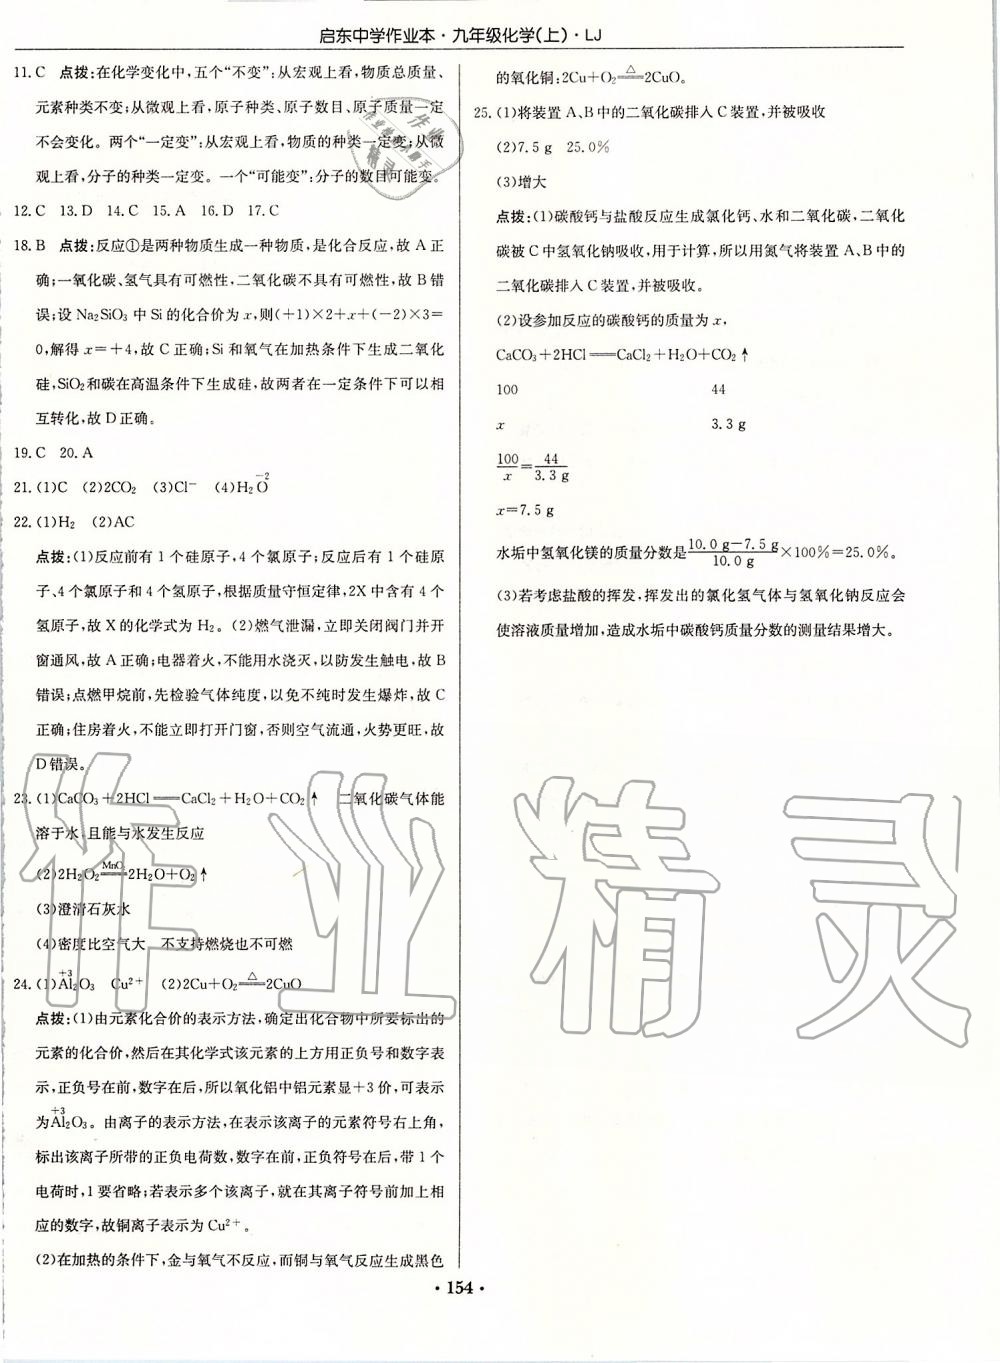 启东中学作业本·九年级化学(上)·LJ
11.C 点拨:在化学变化中,五个“不变”:从宏观上看,物质总质量、
元素种类不变;从微观上看,原子种类、原子数目、原子质量一定
不会变化。两个“一定变”:从宏观上看,物质的种类一定变;从微
观上看,分子的种类一定变。一个“可能变”:分子的数目可能变。
12.C 13.D 14.C 15.A 16.D 17.C
18.B 点拨:反应①是两种物质生成一种物质,是化合反应,故 A 正
确;一氧化碳、氢气具有可燃性,二氧化碳不具有可燃性,故 B 错
误;设 Na₂SiO₃ 中 Si 的化合价为 x,则(+1)×2+x+(-2)×3=
0,解得 x=+4,故 C 正确;Si 和氧气在加热条件下生成二氧化
硅,SiO₂和碳在高温条件下生成硅,故两者在一定条件下可以相
互转化,故 D 正确。
19.C 20.A
21.(1)C (2)2CO₂ (3)Cl⁻ (4)H₂O -2
22.(1)H₂ (2)AC
点拨:(1)反应前有 1 个硅原子,4 个氯原子;反应后有 1 个硅原
子、4 个氯原子和 4 个氢原子,根据质量守恒定律,2X 中含有 4 个
氢原子,故 X 的化学式为 H₂。(2)燃气泄漏,立即关闭阀门并开
窗通风,故 A 正确;电器着火,不能用水浇灭,以防发生触电,故 B
错误;点燃甲烷前,先检验气体纯度,以免不纯时发生爆炸,故 C
正确;住房着火,不能立即打开门窗,否则空气流通,火势更旺,故
D 错误。
23.(1)CaCO₃+2HCl══CaCl₂+H₂O+CO₂↑ 二氧化碳气体能
溶于水,且能与水发生反应
(2)2H₂O₂ MnO₂ ══2H₂O+O₂↑
(3)澄清石灰水
(4)密度比空气大 不支持燃烧也不可燃
24.(1) +3 Al₂O₃ Cu²⁺ (2)2Cu+O₂ △ ══2CuO
点拨:(1)由元素化合价的表示方法,确定出化合物中所要标出的
元素的化合价,然后在其化学式该元素的上方用正负号和数字表
示,正负号在前,数字在后,所以氧化铝中铝元素显+3 价,可表示
为 +3 Al₂O₃。由离子的表示方法,在表示该离子的元素符号右上角,
标出该离子所带的正负电荷数,数字在前,正负符号在后,带 1 个
电荷时,1 要省略;若表示多个该离子,就在其离子符号前加上相
应的数字,故铜离子表示为 Cu²⁺。
(2)在加热的条件下,金与氧气不反应,而铜与氧气反应生成黑色
的氧化铜:2Cu+O₂ △ ══2CuO。
25.(1)将装置 A、B 中的二氧化碳排入 C 装置,并被吸收
(2)7.5 g 25.0%
(3)增大
点拨:(1)碳酸钙与盐酸反应生成氯化钙、水和二氧化碳,二氧化
碳被 C 中氢氧化钠吸收,用于计算,所以用氮气将装置 A、B 中的
二氧化碳排入 C 装置,并被吸收。
(2)设参加反应的碳酸钙的质量为 x,
CaCO₃+2HCl══CaCl₂+H₂O+CO₂↑
100 44
x 3.3 g
100/x=44/3.3 g
x=7.5 g
水垢中氢氧化镁的质量分数是 (10.0 g-7.5 g)/10.0 g×100%=25.0%。
(3)若考虑盐酸的挥发,挥发出的氯化氢气体与氢氧化钠反应会
使溶液质量增加,造成水垢中碳酸钙质量分数的测量结果增大。
作业精灵
·154·